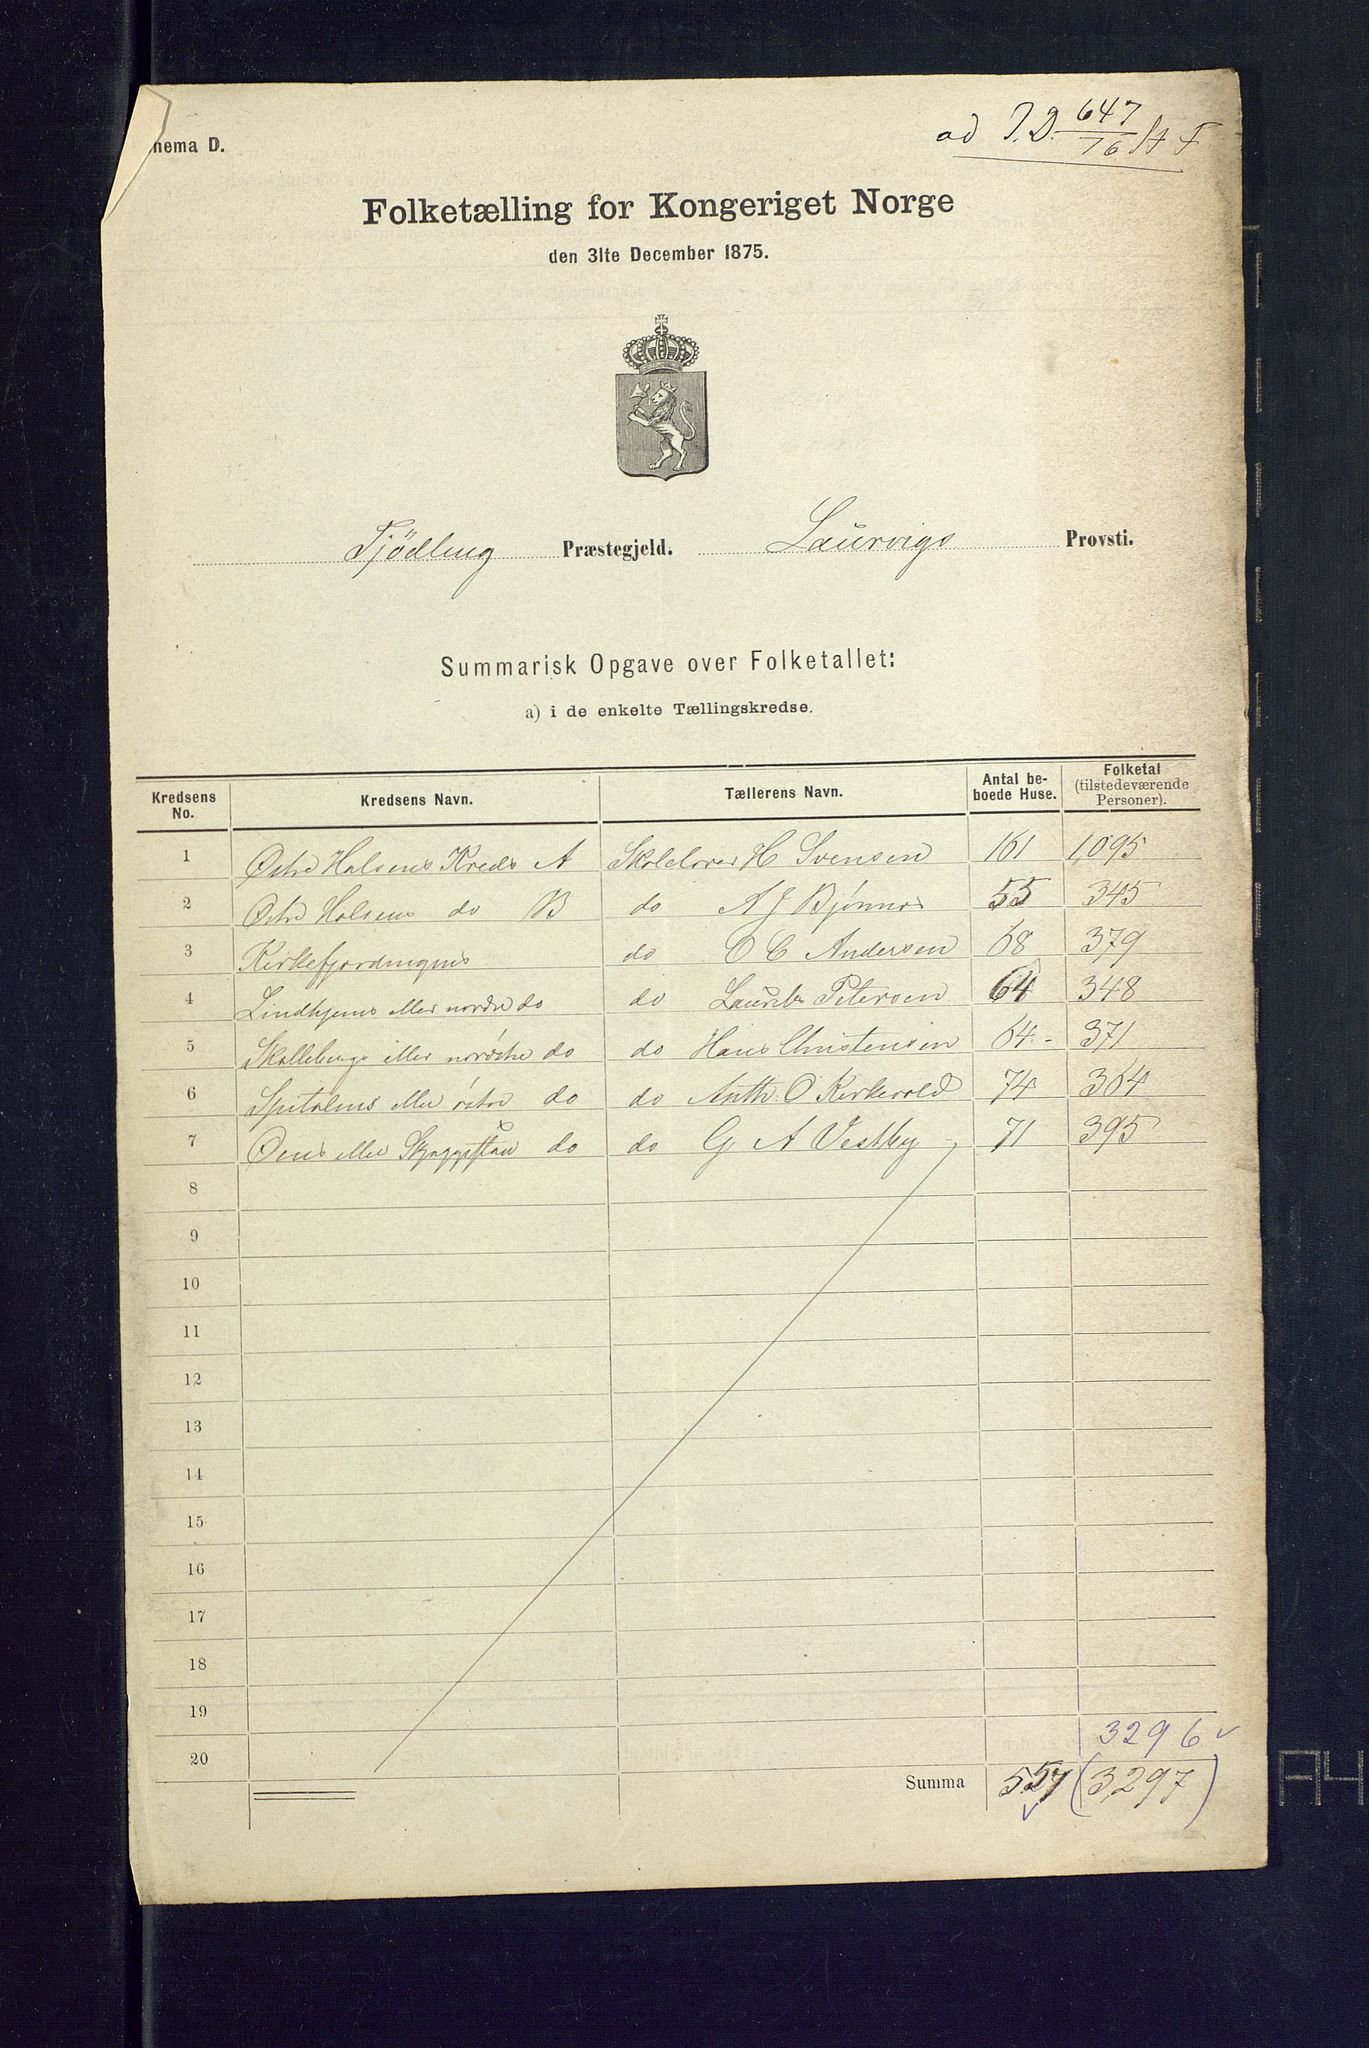 ad J.D. 647/76 St F
hema D.
Folketælling for Kongeriget Norge
den 31te December 1875.
Tjödling Præstegjeld. Laurvigs Provsti.
Summarisk Opgave over Folketallet:
a) i de enkelte Tællingskredse.
Kredsens No. Kredsens Navn. Tællerens Navn. Antal beboede Huse. Folketal (tilstedeværende Personer).
1 Østre Halsens Kreds A Skolelærer H Svensen 161 1,095
2 Østre Halsens do B do A J Bjønnes 55 345
3 Kirkefjordingens do O C Andersen 68 379
4 Lindhjems eller nordre do do Laurits Petersen 64 348
5 Skallebergs eller do do Hans Christensen 64 - 371
6 Spitalens eller østre do do Anth. O Kirkevold 74 364
7 Oens eller do do G A Vestby 71 395
8
9
10
11
12
13
14
15
16
17
18
19
20 3296
Summa 557 (3,297)
A4